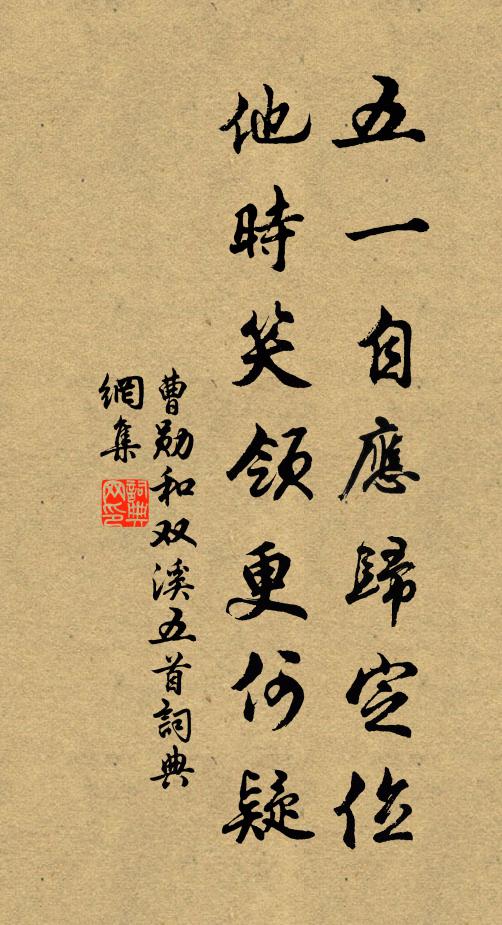 五一自應歸定位
他時笑領更何疑
曹勛和双溪五首詞典
網集
詞典
网印